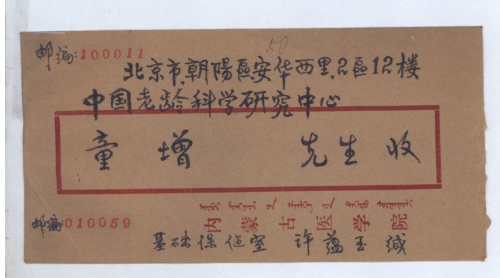 邮编:100011
50
北京市朝陽區安华西里2區12楼
中国老龄科学研究中心
童增 先生 收
邮编010059
内蒙古医学院
基础保偃室 许蕴玉 缄